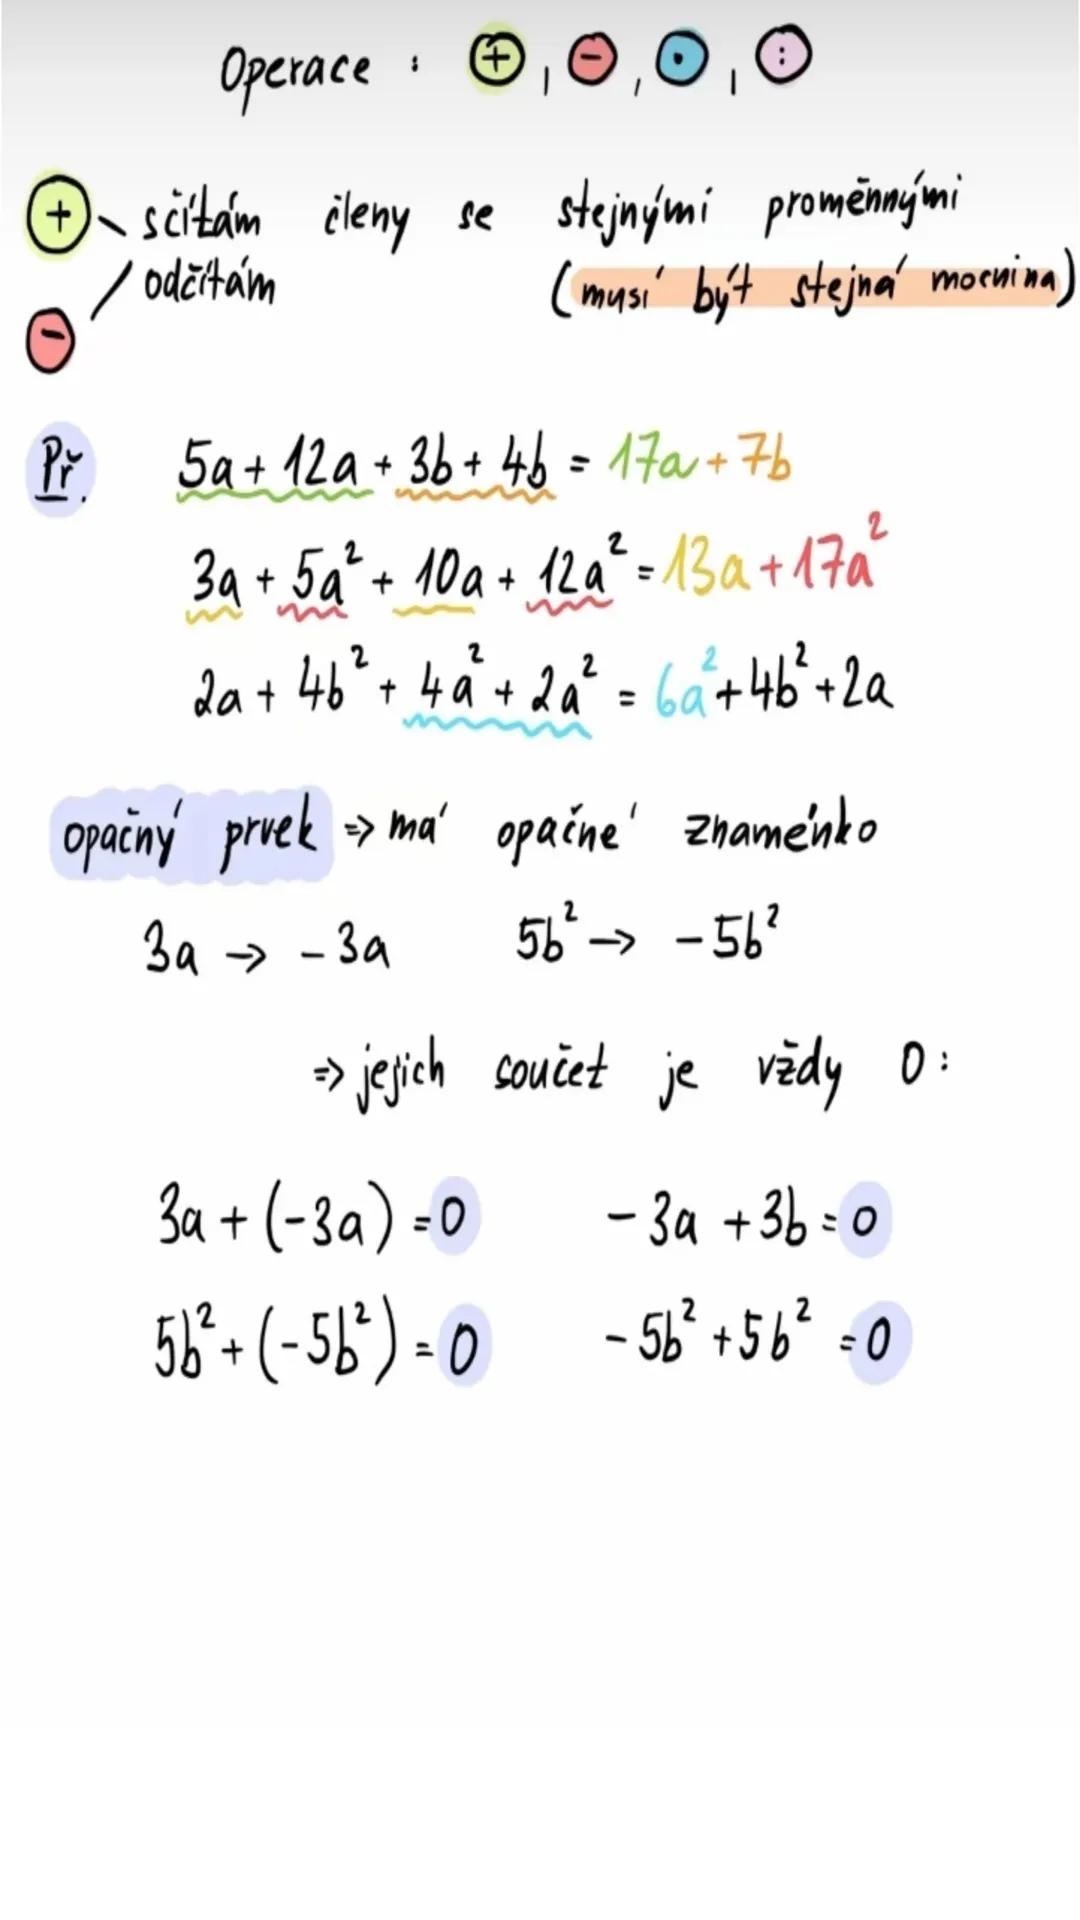 Operace : + , - , • , :
+ sčítám členy se stejnými proměnnými
- odčítám (musí být stejná mocnina)
Př. 5a + 12a + 3b + 4b = 17a + 7b
3a + 5a² + 10a + 12a² = 13a + 17a²
2a + 4b² + 4a² + 2a² = 6a² + 4b² + 2a
opačný prvek => má opačné znaménko
3a → -3a 5b² → -5b²
=> jejich součet je vždy 0:
3a + (-3a) = 0 -3a + 3b = 0
5b² + (-5b²) = 0 -5b² + 5b² = 0